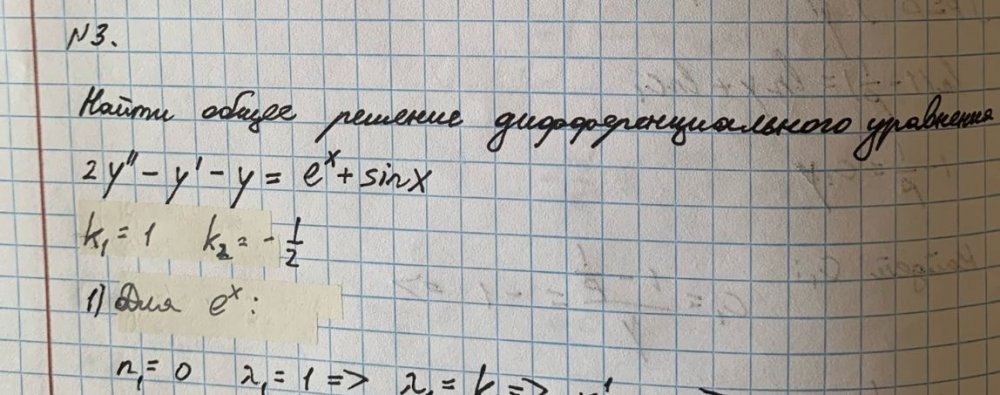 N3.
Найти общее решение дифференциального уравнения
2y'' - y' - y = e^x + sinx
k₁ = 1 k₂ = -1/2
1) Для e^x:
n₁ = 0 λ₁ = 1 => λ₁ = k =>